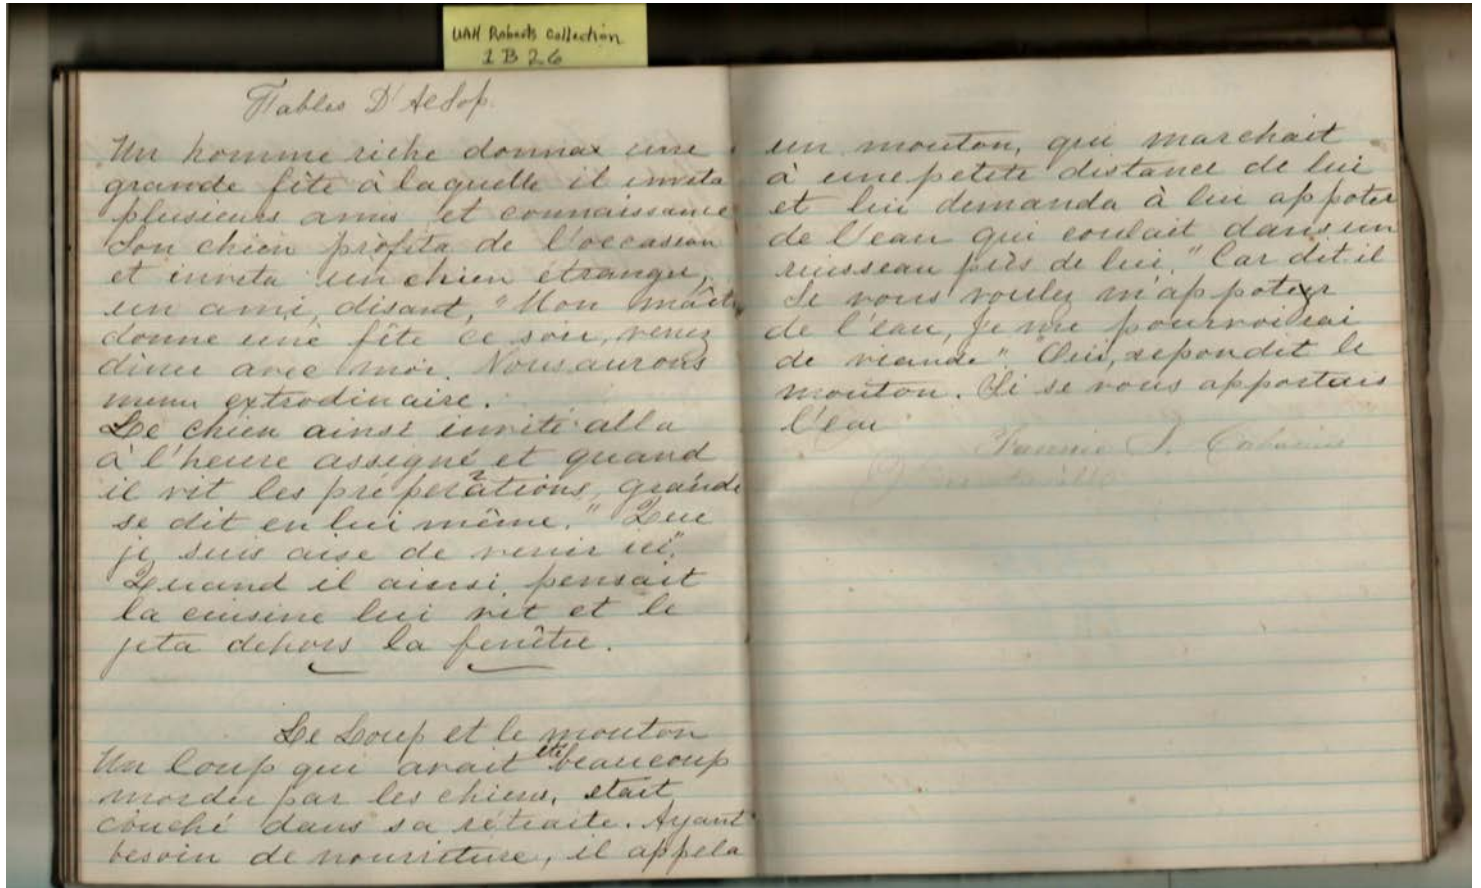 UAH Roberts Collection
1B26
Fables D'Aesop.
Un homme riche donnax une
grande fête à laquelle il invita
plusieurs amis et connaissance
Son chien profita de l'occasion
et invita un chien étranger,
un ami, disant, "Mon maître
donne une fête ce soir, venez
diner avec moi. Nous aurons
menu extrodinaire.
Le chien ainsi invité alla
à l'heure assigné et quand
il vit les préperations, grande
se dit en lui même. "Que
je suis aise de venir ici".
Quand il ainsi pensait
la cuisine lui vit et le
jeta dehors la fenêtre.
Le Loup et le mouton
Un loup qui avait été beaucoup
morder par les chiens, était
couché dans sa retraite. Ayant
besoin de nourriture, il appela
un mouton, qui marchait
à une petite distance de lui
et lui demanda à lui appoter
de l'eau qui coulait dans un
ruisseau près de lui, "Car dit il
Si vous voulez m'appoter
de l'eau, je me pourvoirai
de viande". "Oui, repondit le
mouton. Si je vous apportais
l'eau
Fannie J. Cabaniss